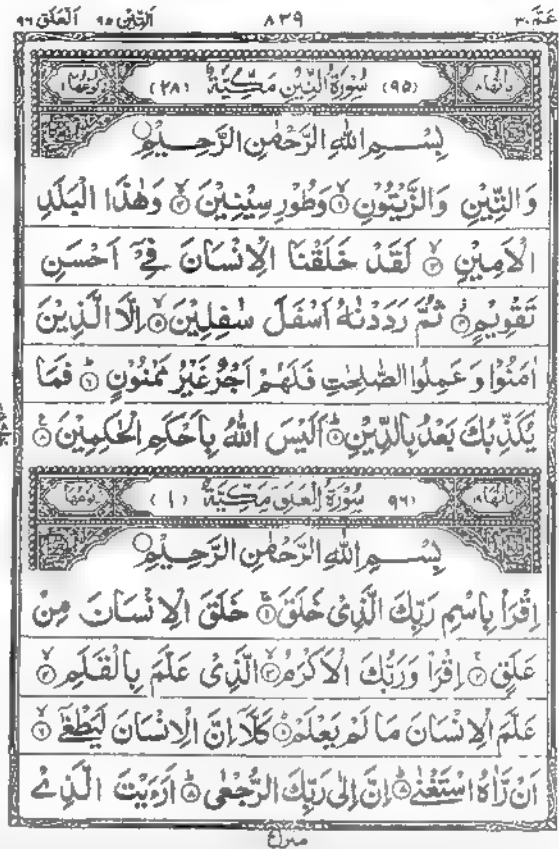 عَمَّ ٣٠ ٨٣٩ اَلتِّيْن ٩٥ اَلْعَلَق ٩٦
اٰيَاتُهَا ٨ (٩٥) سُوْرَةُ التِّيْنِ مَكِّيَّةٌ (٢٨) رُكُوْعُهَا ١
بِسْمِ اللهِ الرَّحْمٰنِ الرَّحِيْمِ
وَالتِّيْنِ وَالزَّيْتُوْنِ ١ وَطُوْرِ سِيْنِيْنَ ٢ وَهٰذَا الْبَلَدِ
الْاَمِيْنِ ٣ لَقَدْ خَلَقْنَا الْاِنْسَانَ فِيْٓ اَحْسَنِ
تَقْوِيْمٍ ٤ ثُمَّ رَدَدْنٰهُ اَسْفَلَ سٰفِلِيْنَ ٥ اِلَّا الَّذِيْنَ
اٰمَنُوْا وَعَمِلُوا الصّٰلِحٰتِ فَلَهُمْ اَجْرٌ غَيْرُ مَمْنُوْنٍ ٦ فَمَا
يُكَذِّبُكَ بَعْدُ بِالدِّيْنِ ٧ اَلَيْسَ اللهُ بِاَحْكَمِ الْحٰكِمِيْنَ ٨
اٰيَاتُهَا ١٩ (٩٦) سُوْرَةُ الْعَلَقِ مَكِّيَّةٌ (١) رُكُوْعُهَا
بِسْمِ اللهِ الرَّحْمٰنِ الرَّحِيْمِ
اِقْرَاْ بِاسْمِ رَبِّكَ الَّذِيْ خَلَقَ ١ خَلَقَ الْاِنْسَانَ مِنْ
عَلَقٍ ٢ اِقْرَاْ وَرَبُّكَ الْاَكْرَمُ ٣ الَّذِيْ عَلَّمَ بِالْقَلَمِ ٤
عَلَّمَ الْاِنْسَانَ مَا لَمْ يَعْلَمْ ٥ كَلَّاۤ اِنَّ الْاِنْسَانَ لَيَطْغٰٓى ٦
اَنْ رَّاٰهُ اسْتَغْنٰى ٧ اِنَّ اِلٰى رَبِّكَ الرُّجْعٰى ٨ اَرَءَيْتَ الَّذِيْ